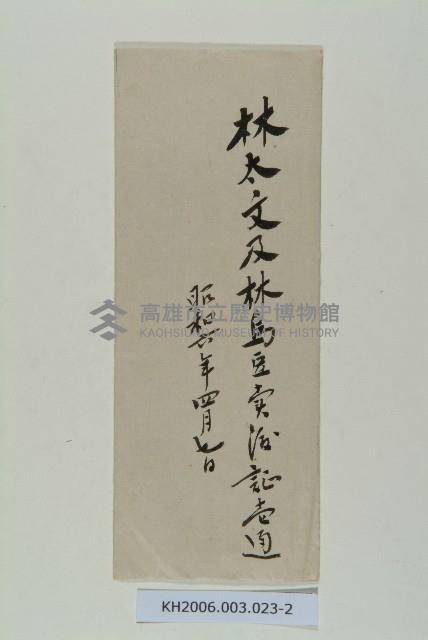 林太文及林烏豆賣渡証壹通
昭和六年四月七日
高雄市立歷史博物館
KAOHSIUNG MUSEUM OF HISTORY
KH2006.003.023-2